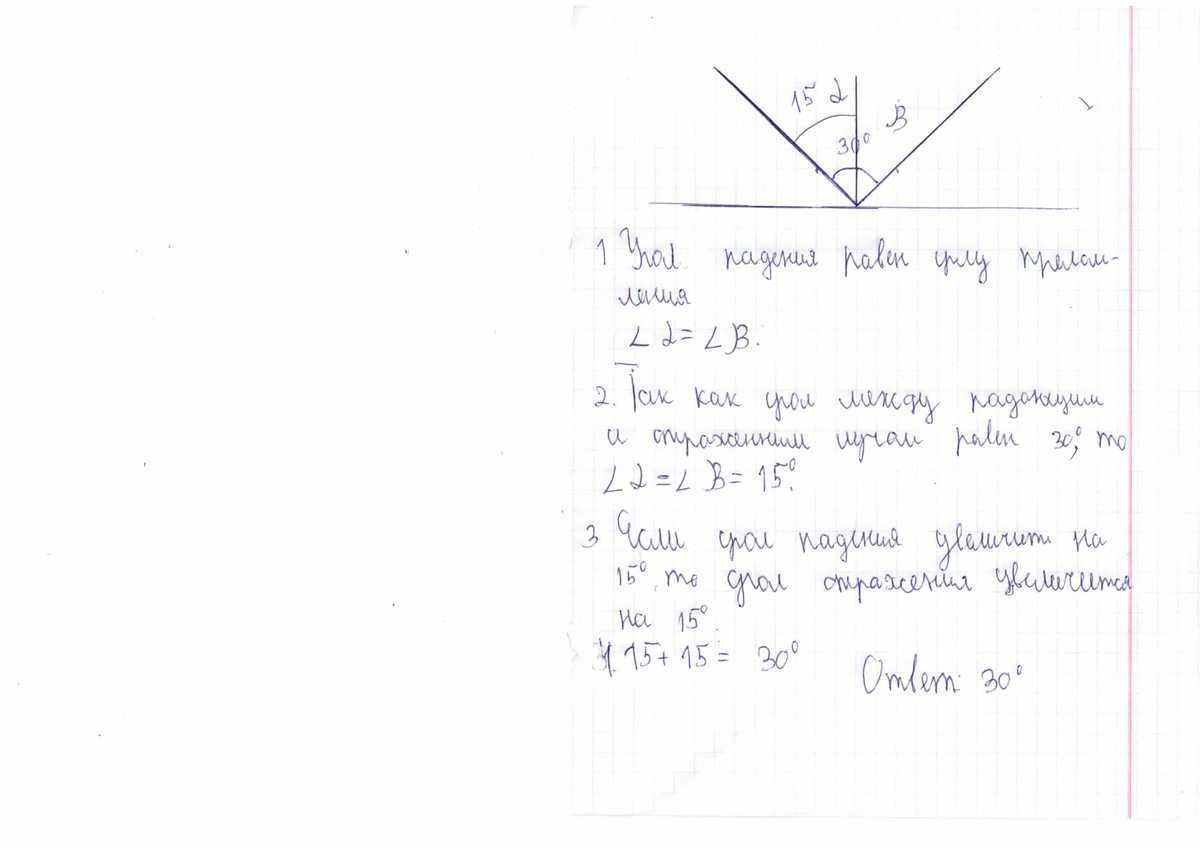 15 α
β
30°
1 Угол падения равен углу прелом-
ления
∠α=∠β.
2. Так как угол между падающим
и отраженним лучом равен 30°, то
∠α=∠β=15°.
3 Если угол падения увеличить на
15°, то угол отражения увеличится
на 15°.
4. 15+15= 30°
Ответ: 30°